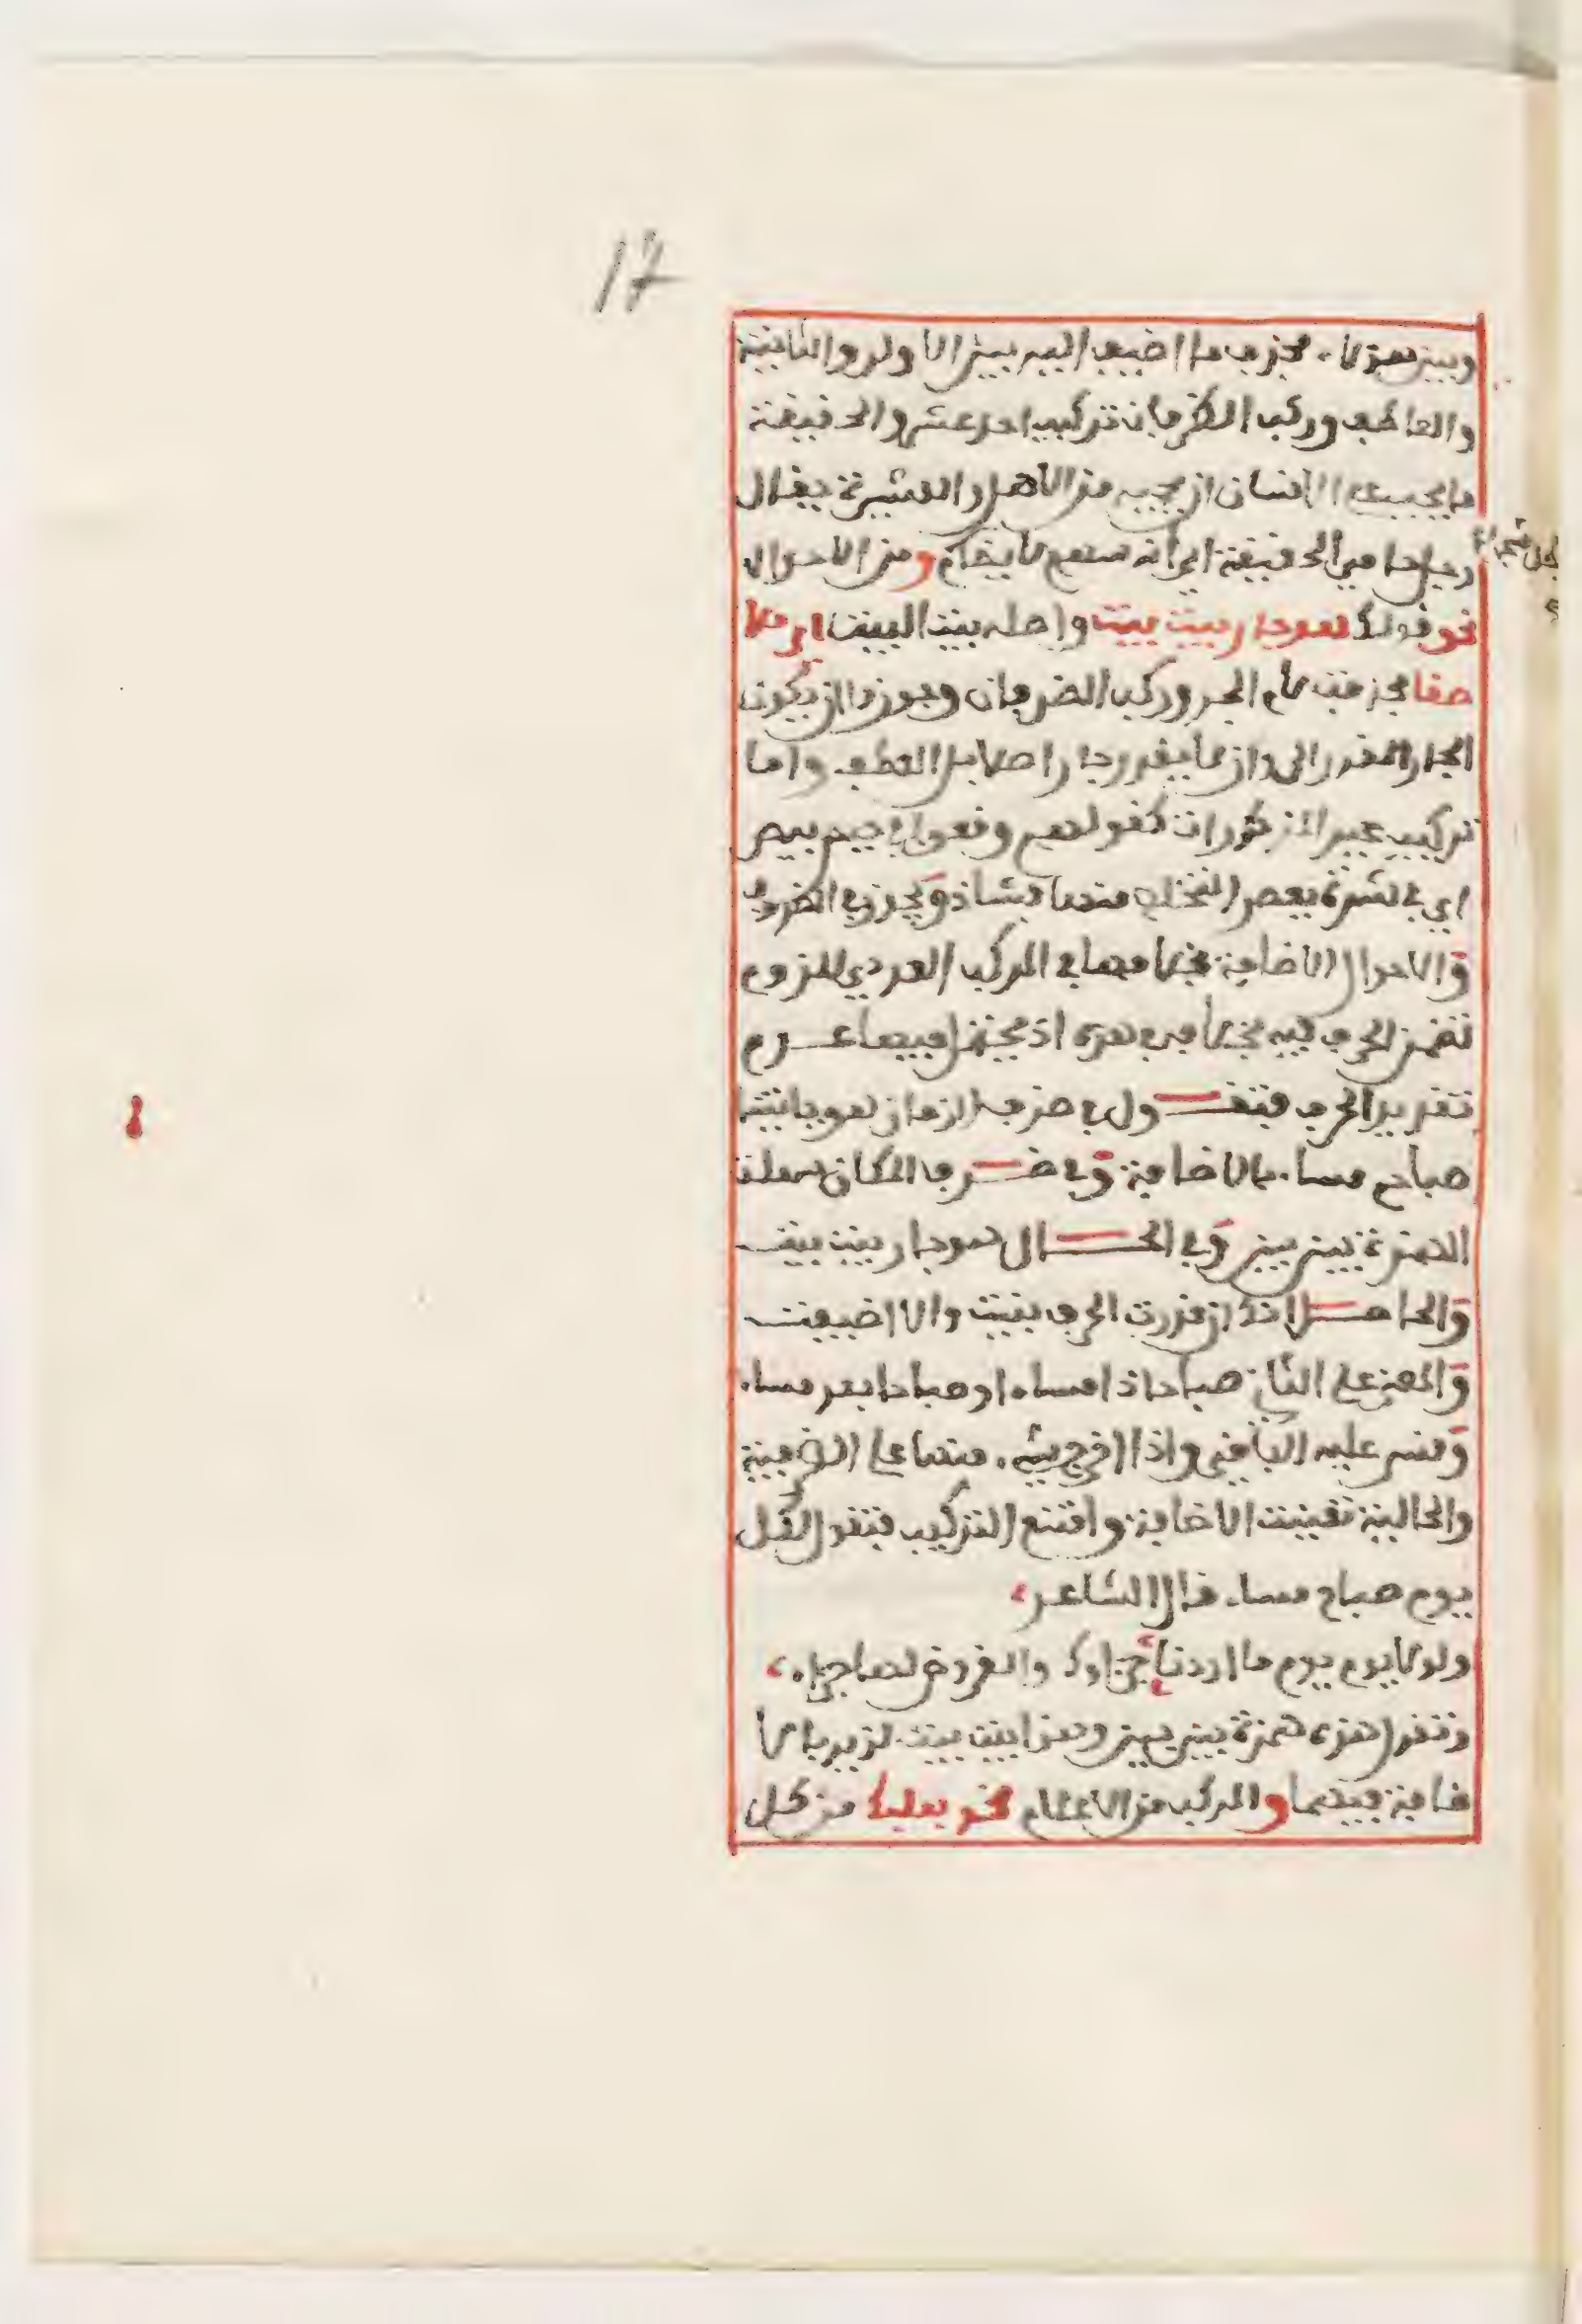 17
وبين هؤلاء فحذف ما اضيف اليه بين الاولى والثانية
والعاطف وركب الظرفان تركيب احد عشر والحقيقة
ما يجب على الانسان ان يحميه من الاهل والعشيرة يقال
رجل حامي الحقيقة اي انه شهم لا يضام ومن الاحوال
نحو قولك هو جاري بيت بيت واصله بيتا لبيت اي ملا
صقا فحذفت لام الجر وركب الضرفان ويجوز ان يكون
الجار المقدر الى وان لا يقدر جار اصلا بل العطف واما
تركيب غير المذكورات كقولهم وقعوا في حيص بيص
اي في شدة يعصر التخلص منها فشاذ ويجوز في الضروف
والاحوال الاضافة بخلافها في المركب العددي للزوم
تضمن الحرف فيه بخلافه في هذه اذ يحتمل فيها عدم
تقدير الحرف فتقول في ضرف الزمان هو ياتينا
صباح مساء بالاضافة وفي ضرف المكان سهلت
الهمزة بين بين وفي الحال هو جاري بيت بيت
والحاصل انك ان قدرت الحرف بنيت والا اضيفت
والمعنى على الثاني صباحا ذا مساء او صباحا بعد مساء
وقس عليه الباقي واذا اخرج شيء منها على الضرفية
والحالية تعينت الاضافة وامتنع التركيب فتقول كل
يوم صباح مساء قال الشاعر
ولولا يوم يوم ما اردنا جزاءك والقروض لها جزاء
وتقول هذه همزة بين بين وهذا بيت بيت لزيد بالا
ضافة فيهما والمركب من الاعلام نحو بعلبك من كل